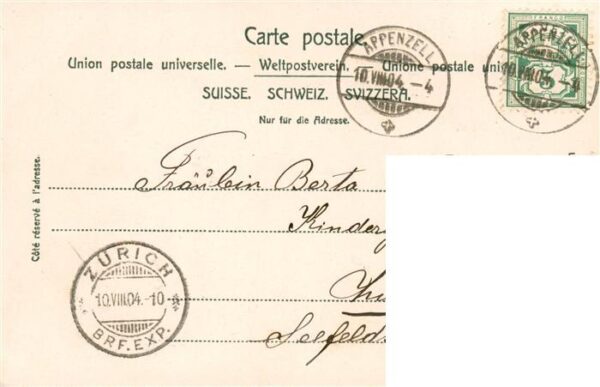 Carte postale.
Union postale universelle. — Weltpostverein. — Unione postale uni
SUISSE. SCHWEIZ. SVIZZERA.
Nur für die Adresse.
APPENZELL
10.VIII.04.–4
APPENZELL
10.VIII.04. 4
FRANCO
5
Côté réservé à l'adresse.
Fräulein Berta
Kinder
ZÜRICH
10.VIII.04.–10
BRF. EXP.
Seefelds